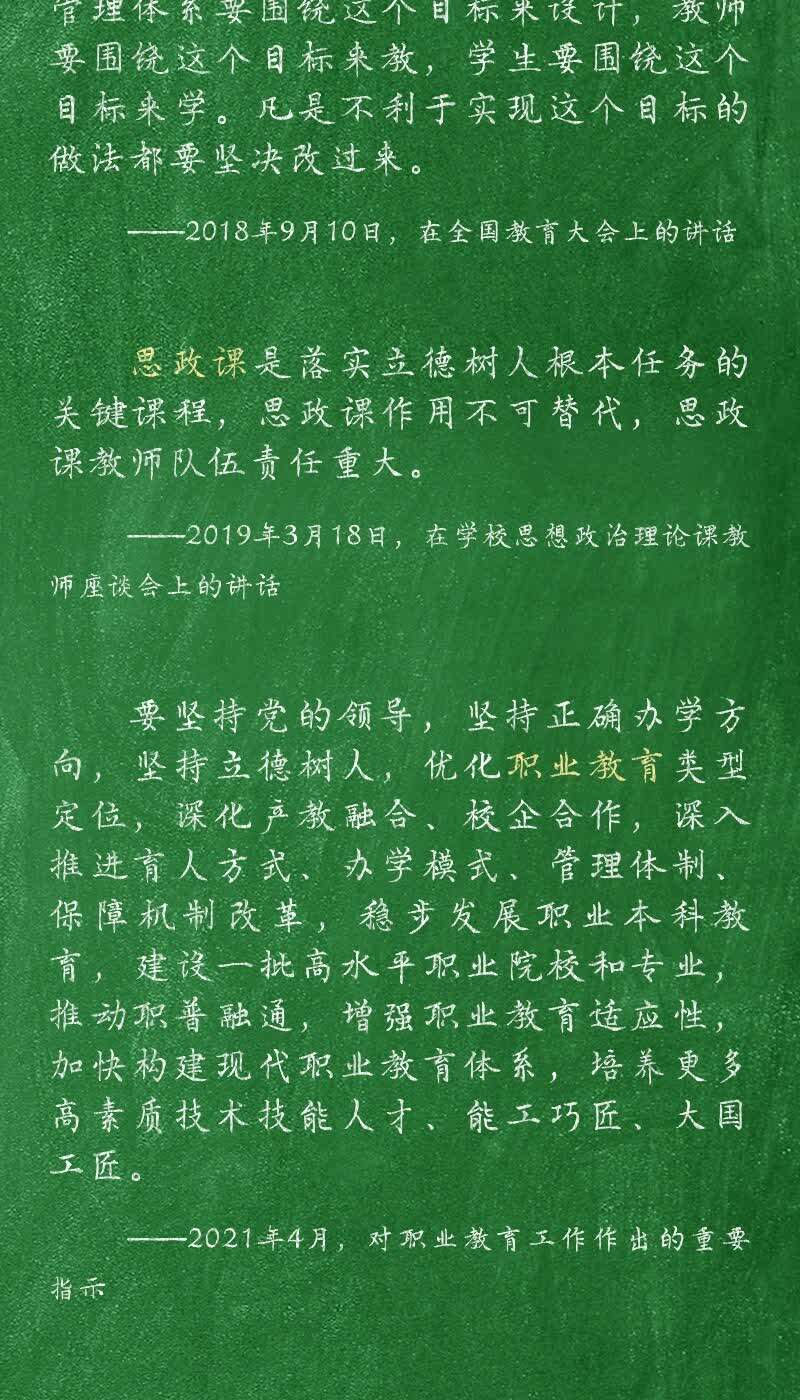 管理体系要围绕这个目标来设计，教师
要围绕这个目标来教，学生要围绕这个
目标来学。凡是不利于实现这个目标的
做法都要坚决改过来。
——2018年9月10日，在全国教育大会上的讲话
思政课是落实立德树人根本任务的
关键课程，思政课作用不可替代，思政
课教师队伍责任重大。
——2019年3月18日，在学校思想政治理论课教
师座谈会上的讲话
要坚持党的领导，坚持正确办学方
向，坚持立德树人，优化职业教育类型
定位，深化产教融合、校企合作，深入
推进育人方式、办学模式、管理体制、
保障机制改革，稳步发展职业本科教
育，建设一批高水平职业院校和专业，
推动职普融通，增强职业教育适应性，
加快构建现代职业教育体系，培养更多
高素质技术技能人才、能工巧匠、大国
工匠。
——2021年4月，对职业教育工作作出的重要
指示